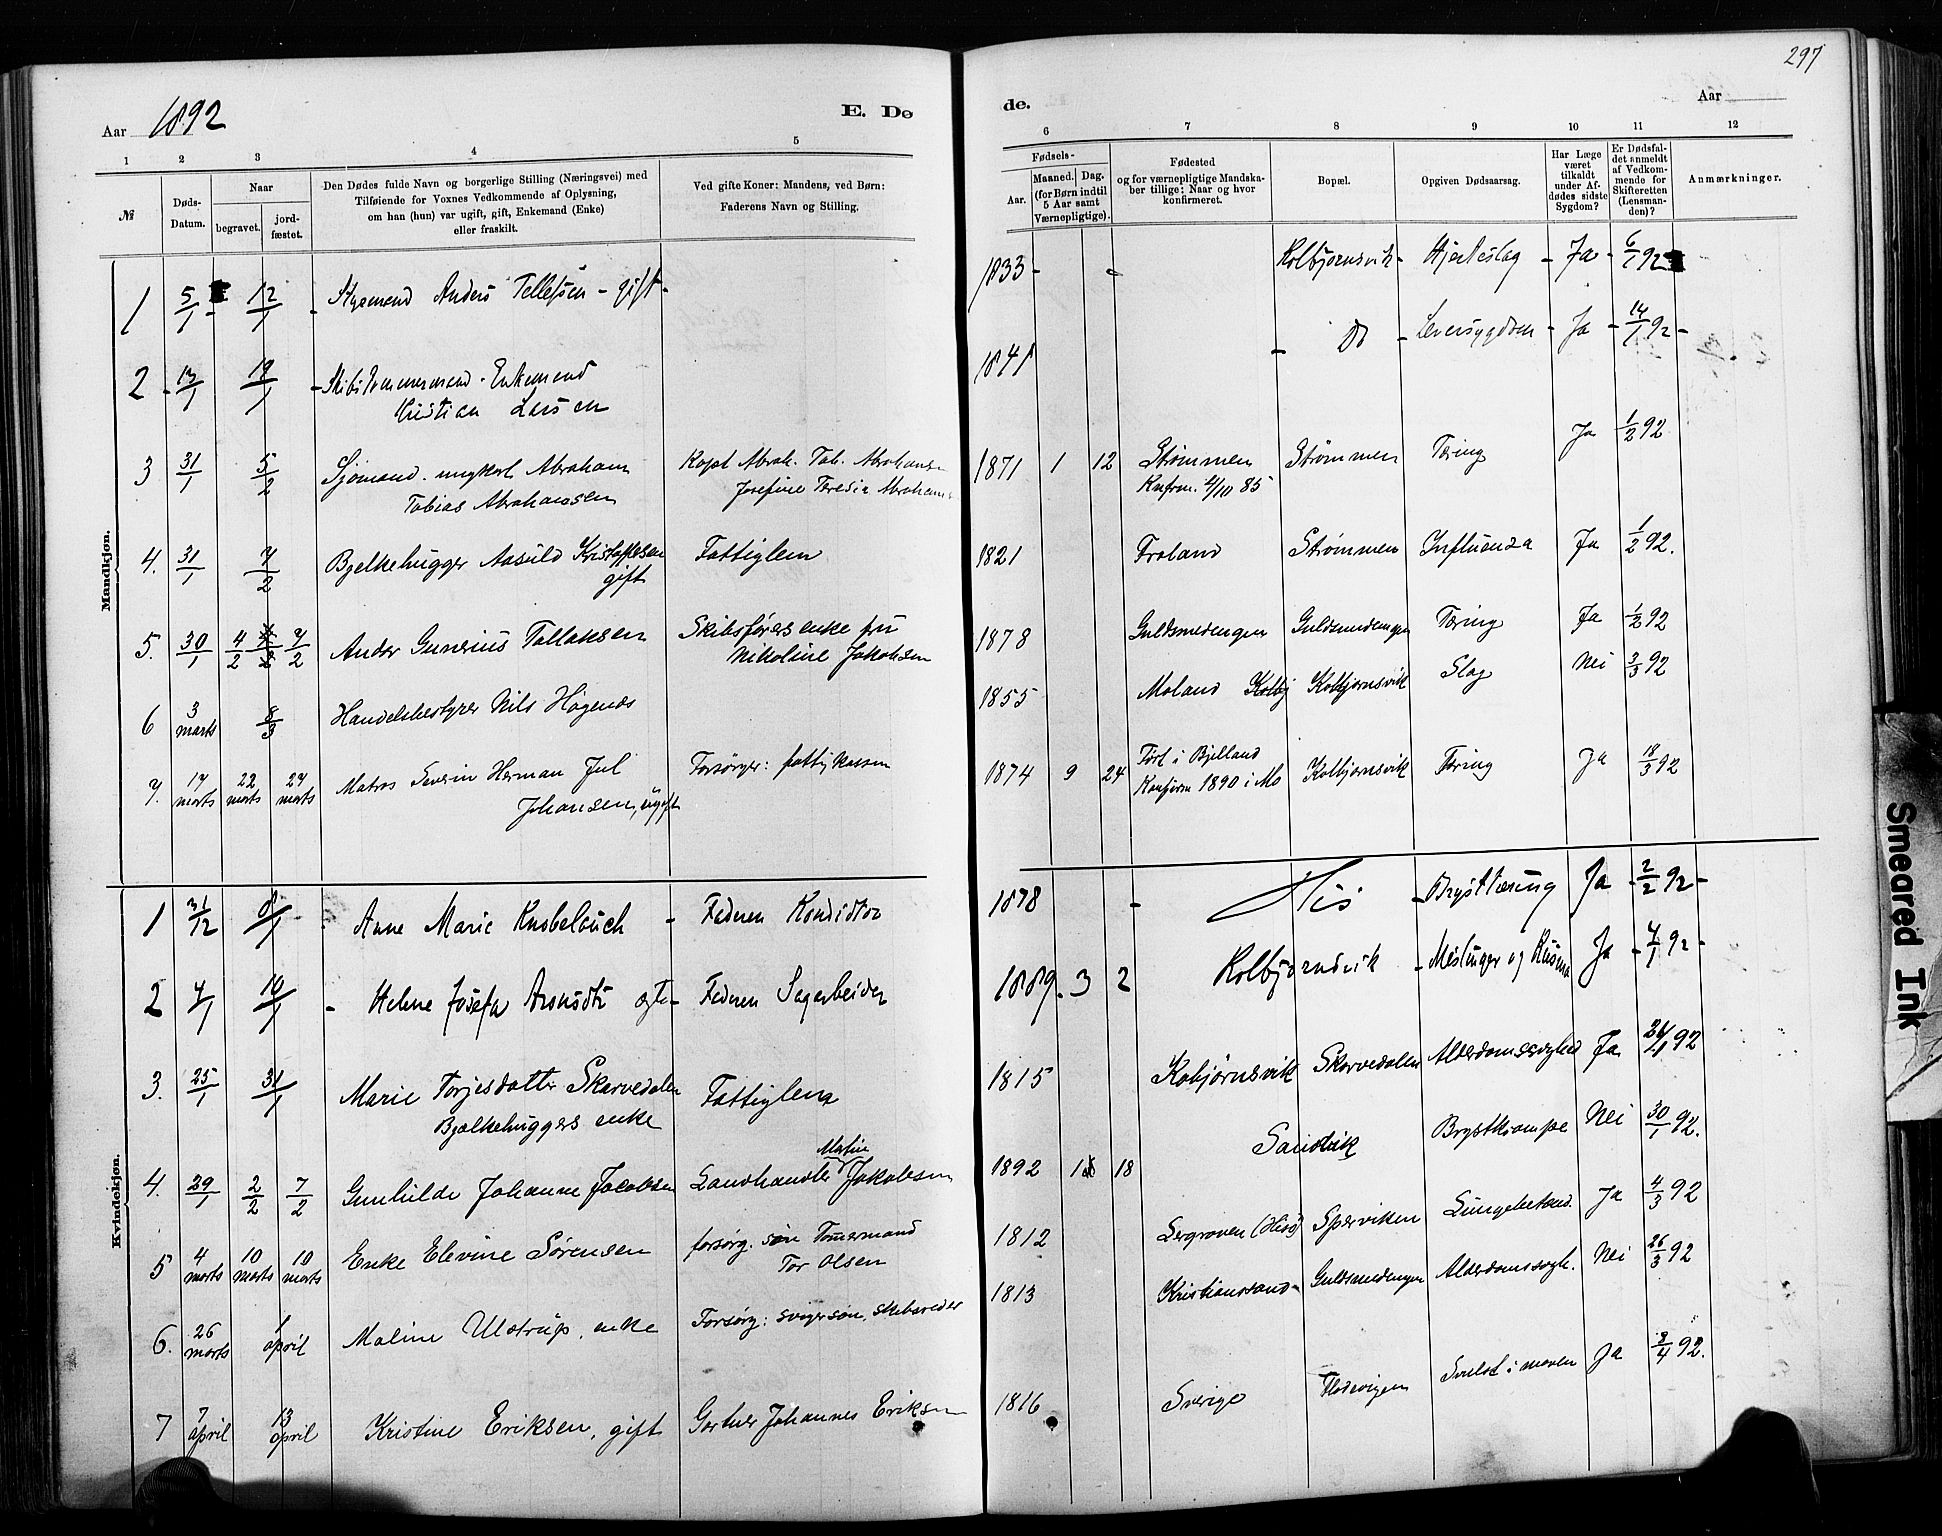 297
Aar 1892 E. Dø
de. Aar
1 2 3 4 5
6 7 8 9 10 11 12
№
Døds-
Datum.
Naar
begravet.
jord-
fæstet.
Den Dødes fulde Navn og borgerlige Stilling (Næringsvei) med
Tilføiende for Voxnes Vedkommende af Oplysning,
om han (hun) var ugift, gift, Enkemand (Enke)
eller fraskilt.
Ved gifte Koner: Mandens, ved Børn:
Faderens Navn og Stilling.
Fødsels-
Aar.
Maaned. Dag.
(for Børn indtil
5 Aar samt
Værnepligtige).
Fødested
og for værnepligtige Mandska-
ber tillige: Naar og hvor
konfirmeret.
Bopæl.
Opgiven Dødsaarsag.
Har Læge
været
tilkaldt
under Af-
dødes sidste
Sygdom?
Er Dødsfal-
det anmeldt
af Vedkom-
mende for
Skifteretten
(Lensman-
den)?
Anmærkninger.
Mandkjøn.
1 5/1 - 12/1 - Anders Tellefsen - gift - 1833 - Kolbjørnsvik - Hjerteslag - Ja - 6/1 92
2 - 13/1 19/1 - Skibstømmermand - Enkemand
Kristian Larsen 1841 - Do - Leversygdom - Ja - 14/1 92 -
3 31/1 5/2 Sjømand ungkarl Abraham
Tobias Abrahamsen
Kapt Abrah. Tob. Abrahamsen
Josefine Teresia Abrahams
1871 1 12 Strømmen
Knfrm. 4/10 85
Strømmen Tæring Ja 1/2 92
4. 31/1 7/2 Bjelkehugger Aasuld Kristoffersen
gift
Fattiglem 1821 Froland Strømmen Influensa Ja 1/2 92.
5. 30/1 4/2 7/2 Ander Gunerius Tallaksen
Skibsførers enke fru
Nikoline Jakobsen
1878 Guldsmedengen Guldsmedengen Tæring Ja 1/2 92
6 3 marts 8/3 Handelsbestyrer Nils Høgenes 1855 Moland Kolbj Kolbjørnsvik Slag Nei 3/3 92
7. 17 marts 22 marts 27 marts Matros Severin Herman Jul
Johansen, ugift
Forsørger: fattigkassen
1874 9 24 Født i Bjelland
Konfirm 1890 i Mo
Kolbjørnsvik Tæring Ja 18/3 92
Kvindekjøn.
1 31/12 8/1 - Anne Marie - Faderen Konditor 1878 - His - Brysttæring Ja - 2/2 92 -
2 7/1 14/1 - Helene Josefa - Faderen Sagarbeider 1889. 3 2 Kolbjørnsvik - Meslinger og Ja - 7/1 92 -
3. 25/1 31/1 Marie Torjesdatter Skarvedalen
Bjælkehuggers enke
Fattiglem 1815 Kobjørnsvik Skarvedalen Alderdomssvaghed Ja 92
4. 29/1 2/2 7/2 Gunhilde Johanne Jacobsen
Martin
Landhandler Jakobsen
1892 18 Sandvik Brystkrampe Nei 30/1 92.
5 4 marts 10 marts 10 marts Enke Elevine Sørensen
forsørg. søn Tømermand
Tor Olsen
1812 (Hisø) Sperviken Lungebetænd. Ja 4/3 92
6. 26 marts 1 april Maline Ulstrup, enke Forsørg: svigersøn, skibsreder
1813 Kristianssand - Guldsmedengen Alderdomssvgh. Nei 26/3 92
7 7 april 13 april Kristine Eriksen, gift Gartner Johannes Eriksen
1816 Sverige Flødevigen Svulst i maven Ja 8/4 92.
Smeared Ink